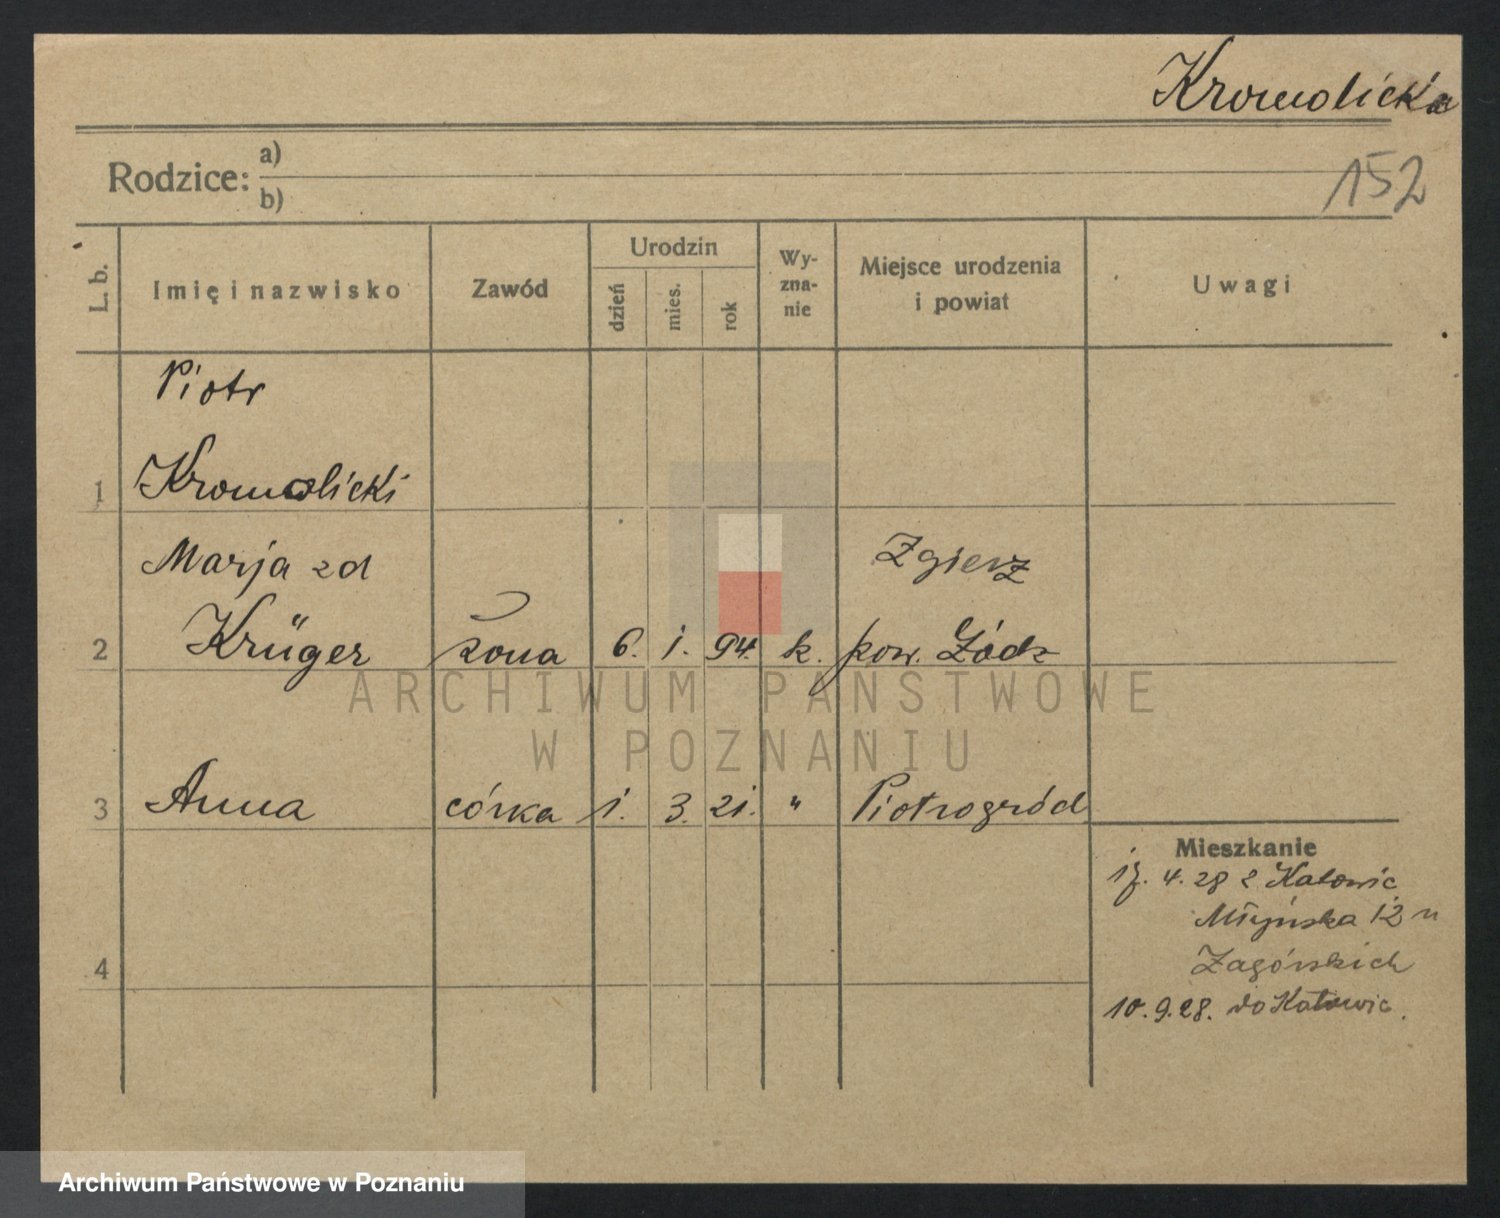 Kromolicka
Rodzice: a)
b)
152
L. b.
Imię i nazwisko
Zawód
Urodzin
dzień
mies.
rok
Wy-
zna-
nie
Miejsce urodzenia
i powiat
Uwagi
Piotr
1 Kromolicki
Marja zd Zgierz
2 Krüger żona 6. 1. 94. k. pow. Łódz
ARCHIWUM PAŃSTWOWE
W POZNANIU
3 Anna córka 1. 3. 21. " Piotrogród
Mieszkanie
17. 4. 28 z Katowic
Młyńska 12 u
Zagórskich
4
10. 9. 28. do Katowic.
Archiwum Państwowe w Poznaniu